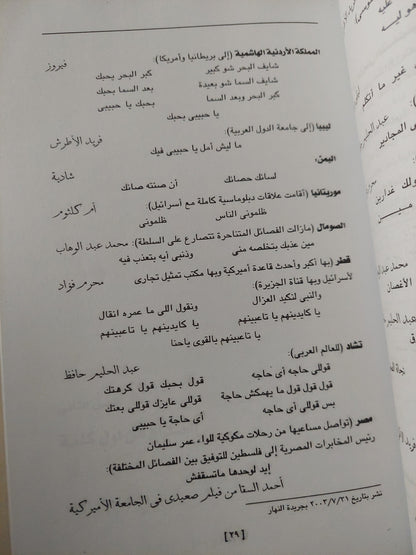 المملكة الأردنية الهاشمية (إلى بريطانيا وأمريكا):
فيروز
شايف البحر شو كبير كبر البحر بحبك
شايف السما شو بعيدة بعد السما بحبك
كبر البحر وبعد السما بحبك يا حبيبى
يا حبيبى بحبك
ليبيا (إلى جامعة الدول العربية):
فريد الأطرش
ما ليش أمل يا حبيبى فيك
اليمن:
شادية
لسانك حصانك أن صنته صانك
موريتانيا (أقامت علاقات دبلوماسية كاملة مع إسرائيل):
أم كلثوم
ظلمونى الناس ظلمونى
الصومال (مازالت الفصائل المتناحرة تتصارع على السلطة):
محمد عبد الوهاب
مين عذبك بتخلصه منى وذنبى أيه بتعذب فيه
قطر (بها أكبر وأحدث قاعدة أميركية وبها مكتب تمثيل تجارى
لأسرائيل وبها قناة الجزيرة):
محرم فؤاد
والنبى لنكيد العزال ونقول اللى ما عمره انقال
يا كايدينهم يا تاعبينهم يا كايدينهم يا تاعبينهم
يا تاعبينهم بالقوى ياحنا
تشاد (للعالم العربى):
عبد الحليم حافظ
قوللى حاجه أى حاجه قول بحبك قول كرهتك
قول قول قول ما يهمكش حاجة قوللى عايزك قوللى بعتك
بس قوللى أى حاجه أى حاجة يا حبيبى
مصر (تواصل مساعيها من رحلات مكوكية للواء عمر سليمان
رئيس المخابرات المصرية إلى فلسطين للتوفيق بين الفصائل المختلفة):
إيد لوحدها ماتسقفش
أحمد السقا من فيلم صعيدى فى الجامعة الأميركية
نشر بتاريخ ٢٠٠٣/٧/٣١ بجريدة النهار
[٢٩]